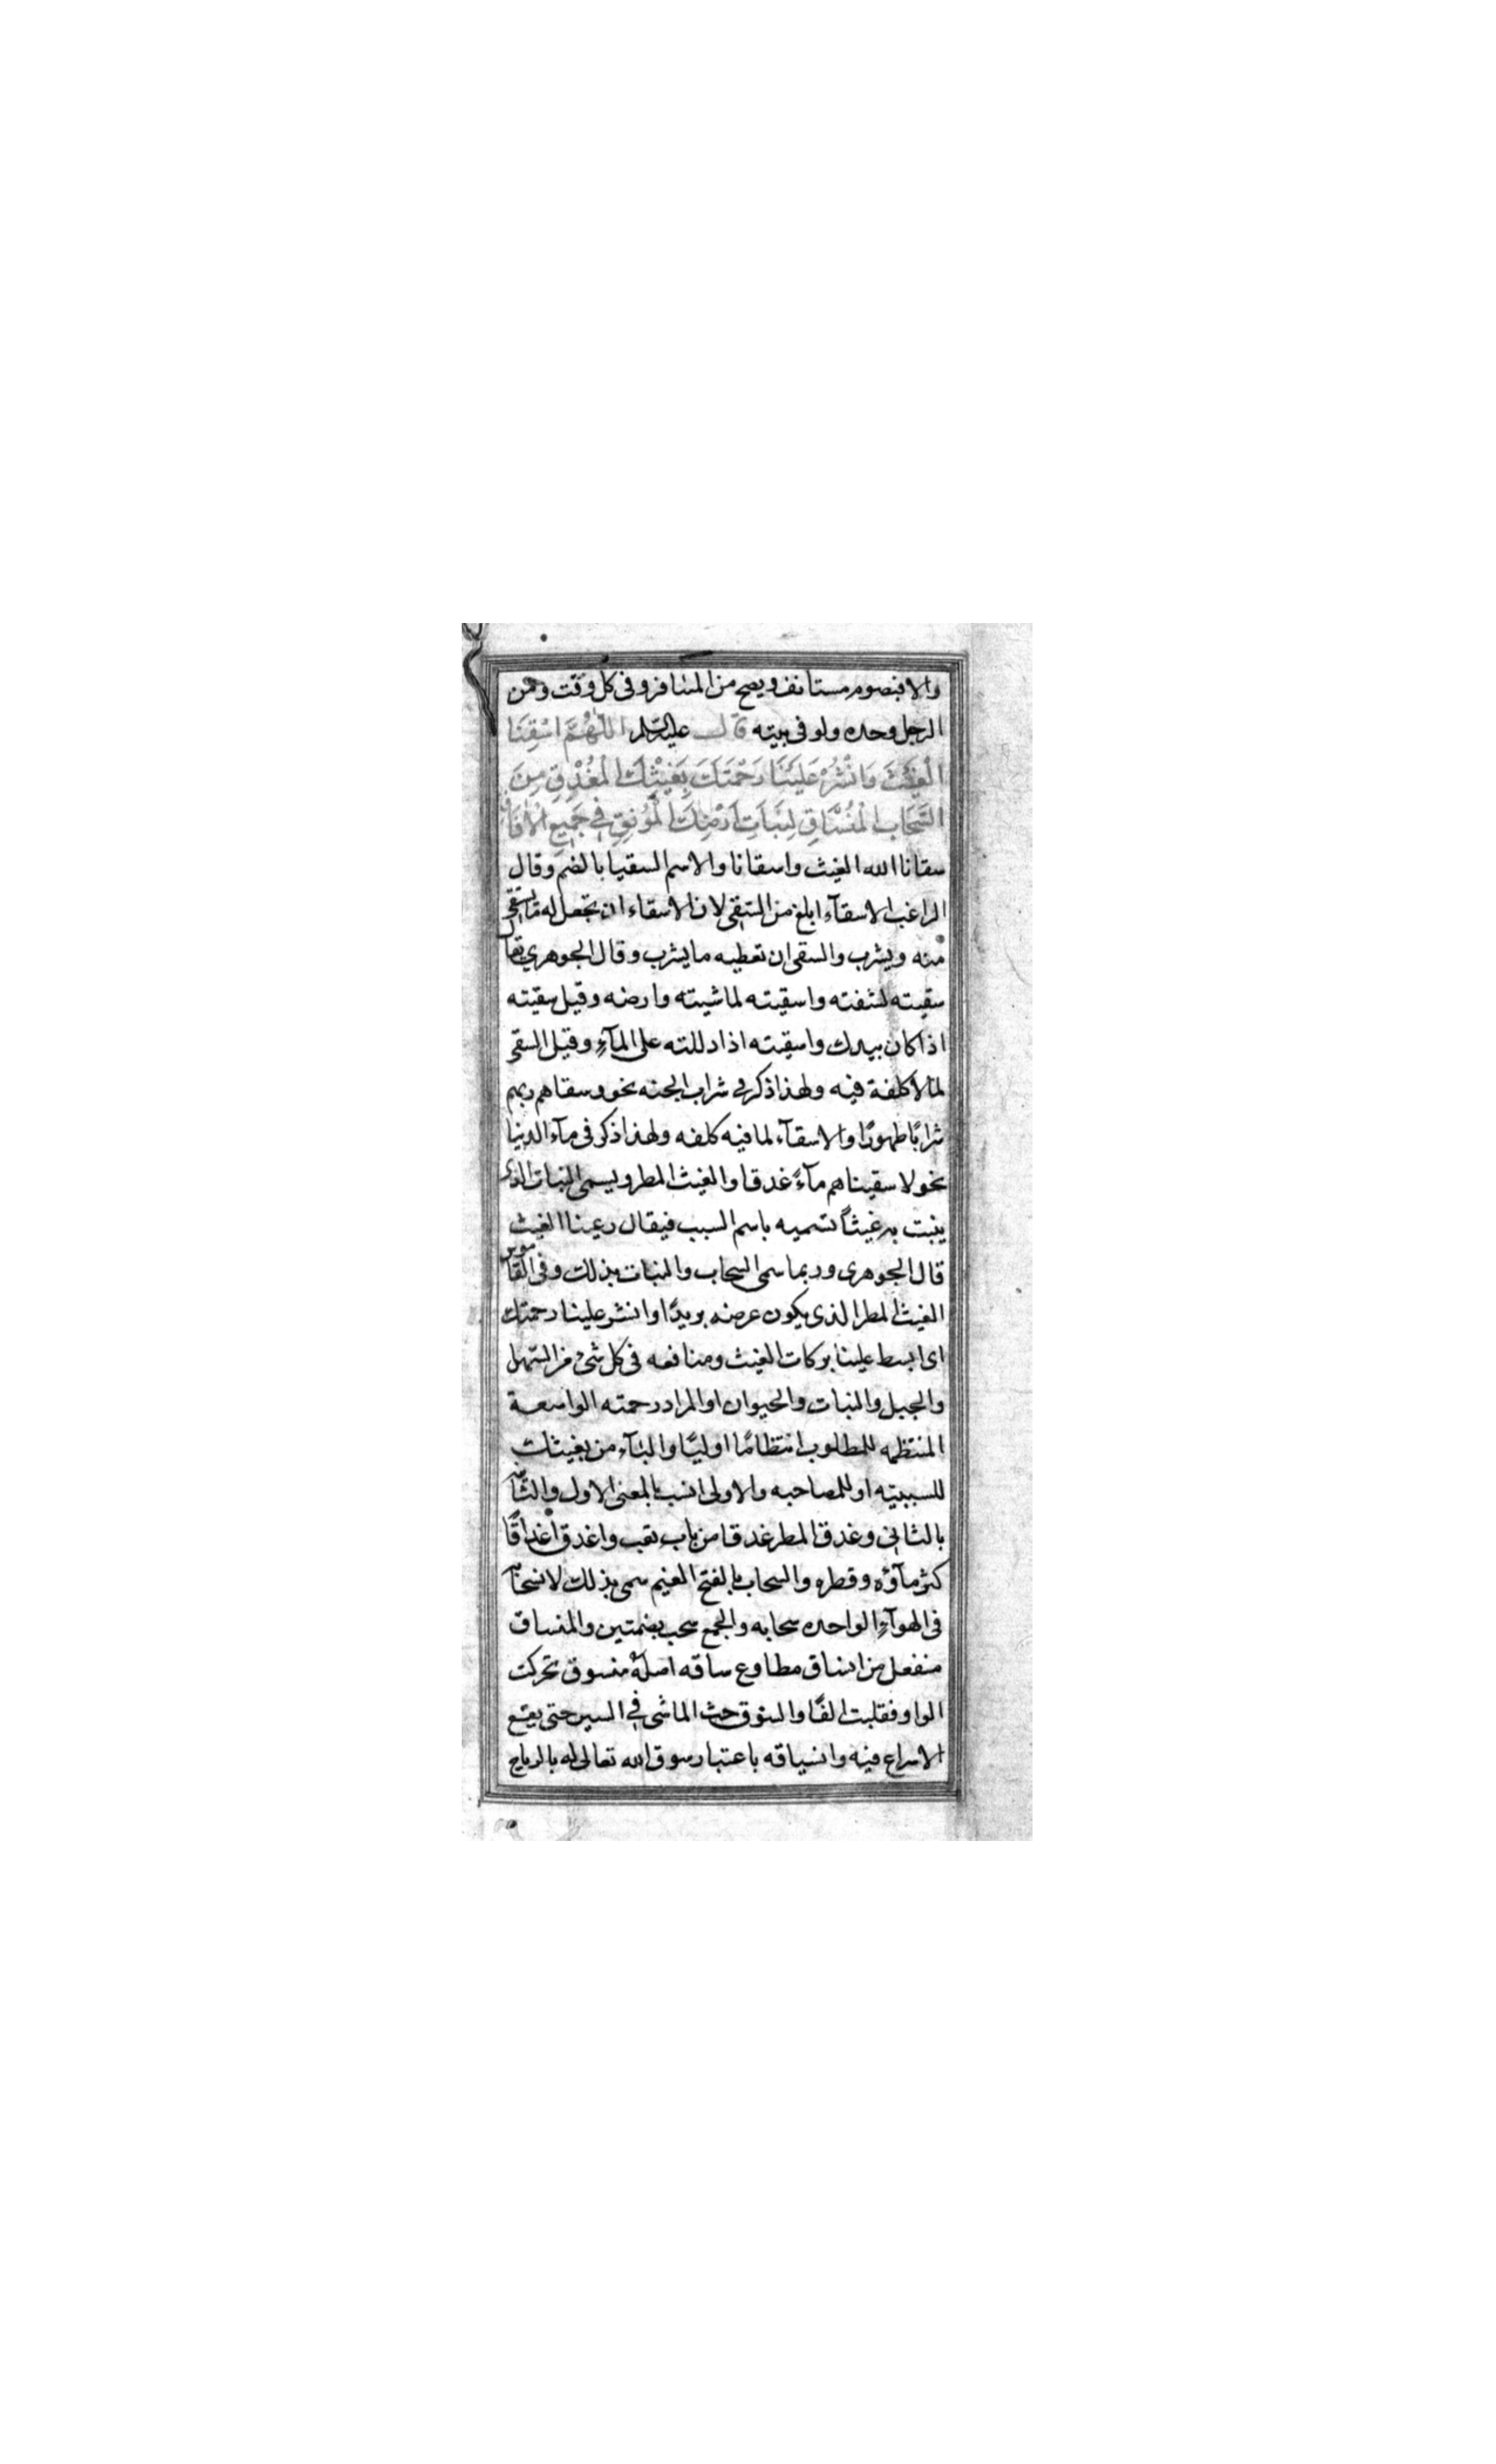 والا فبصوم مستانف ويصح من المسافر وفى كل وقت ومن
الرجل وحده ولو فى بيته قال عليه السلم اللهم اسقنا
الْغَيْثَ وَانْشُرْ عَلَيْنَا رَحْمَتَكَ بِغَيْثِكَ الْمُغْدِقِ مِنَ
السَّحَابِ الْمُنْسَاقِ لِنَبَاتِ اَرْضِكَ الْمُونِقِ فِى جَمِيعِ الْافَاقِ
سقانا الله الغيث واسقانا والاسم السقيا بالضم وقال
الراغب الاسقآء ابلغ من السقى لان الاسقاء ان تجعل له ما يستقى
منه ويشرب والسقى ان تعطيه ما يشرب وقال الجوهري يقال
سقيته لشفته واسقيته لماشيته وارضه وقيل سقيته
اذا كان بيدك واسقيته اذا دللته على المآء وقيل السقى
لما لا كلفة فيه ولهذا ذكر فى شراب الجنه نحو وسقاهم ربهم
شرابًا طهورًا والاسقآء لما فيه كلفه ولهذا ذكر فى مآء الدنيا
نحو لاسقيناهم مآءً غدقا والغيث المطر ويسمى النبات الذى
ينبت به غيثًا تسميه باسم السبب فيقال رعينا الغيث
قال الجوهرى وربما سمى السحاب والنبات بذلك وفى القاموس
الغيث المطر الذى يكون عرضه بريدًا وانشر علينا رحمتك
اى ابسط علينا بركات الغيث ومنافعه فى كل شئ من السهل
والجبل والنبات والحيوان او المراد رحمته الواسعة
المنتظمه للمطلوب انتظامًا اوليًا والبآء من بغيثك
للسببيته او للمصاحبه والاولى انسب بالمعنى الاول والثانيه
بالثانى وغدق المطر غدقا من باب تعب واغدق اغداقًا
كثر مآؤه وقطره والسحاب بالفتح الغيم سمى بذلك لانسحابه
فى الهوآء الواحده سحابه والجمع سحب بضمتين والمنساق
منفعل من انساق مطاوع ساقه اصله منسوق تحركت
الواو فقلبت الفًا والسوق حث الماشى فى السير حتى يقع
الاسراع فيه وانسياقه باعتبار سوق الله تعالى له بالرياح